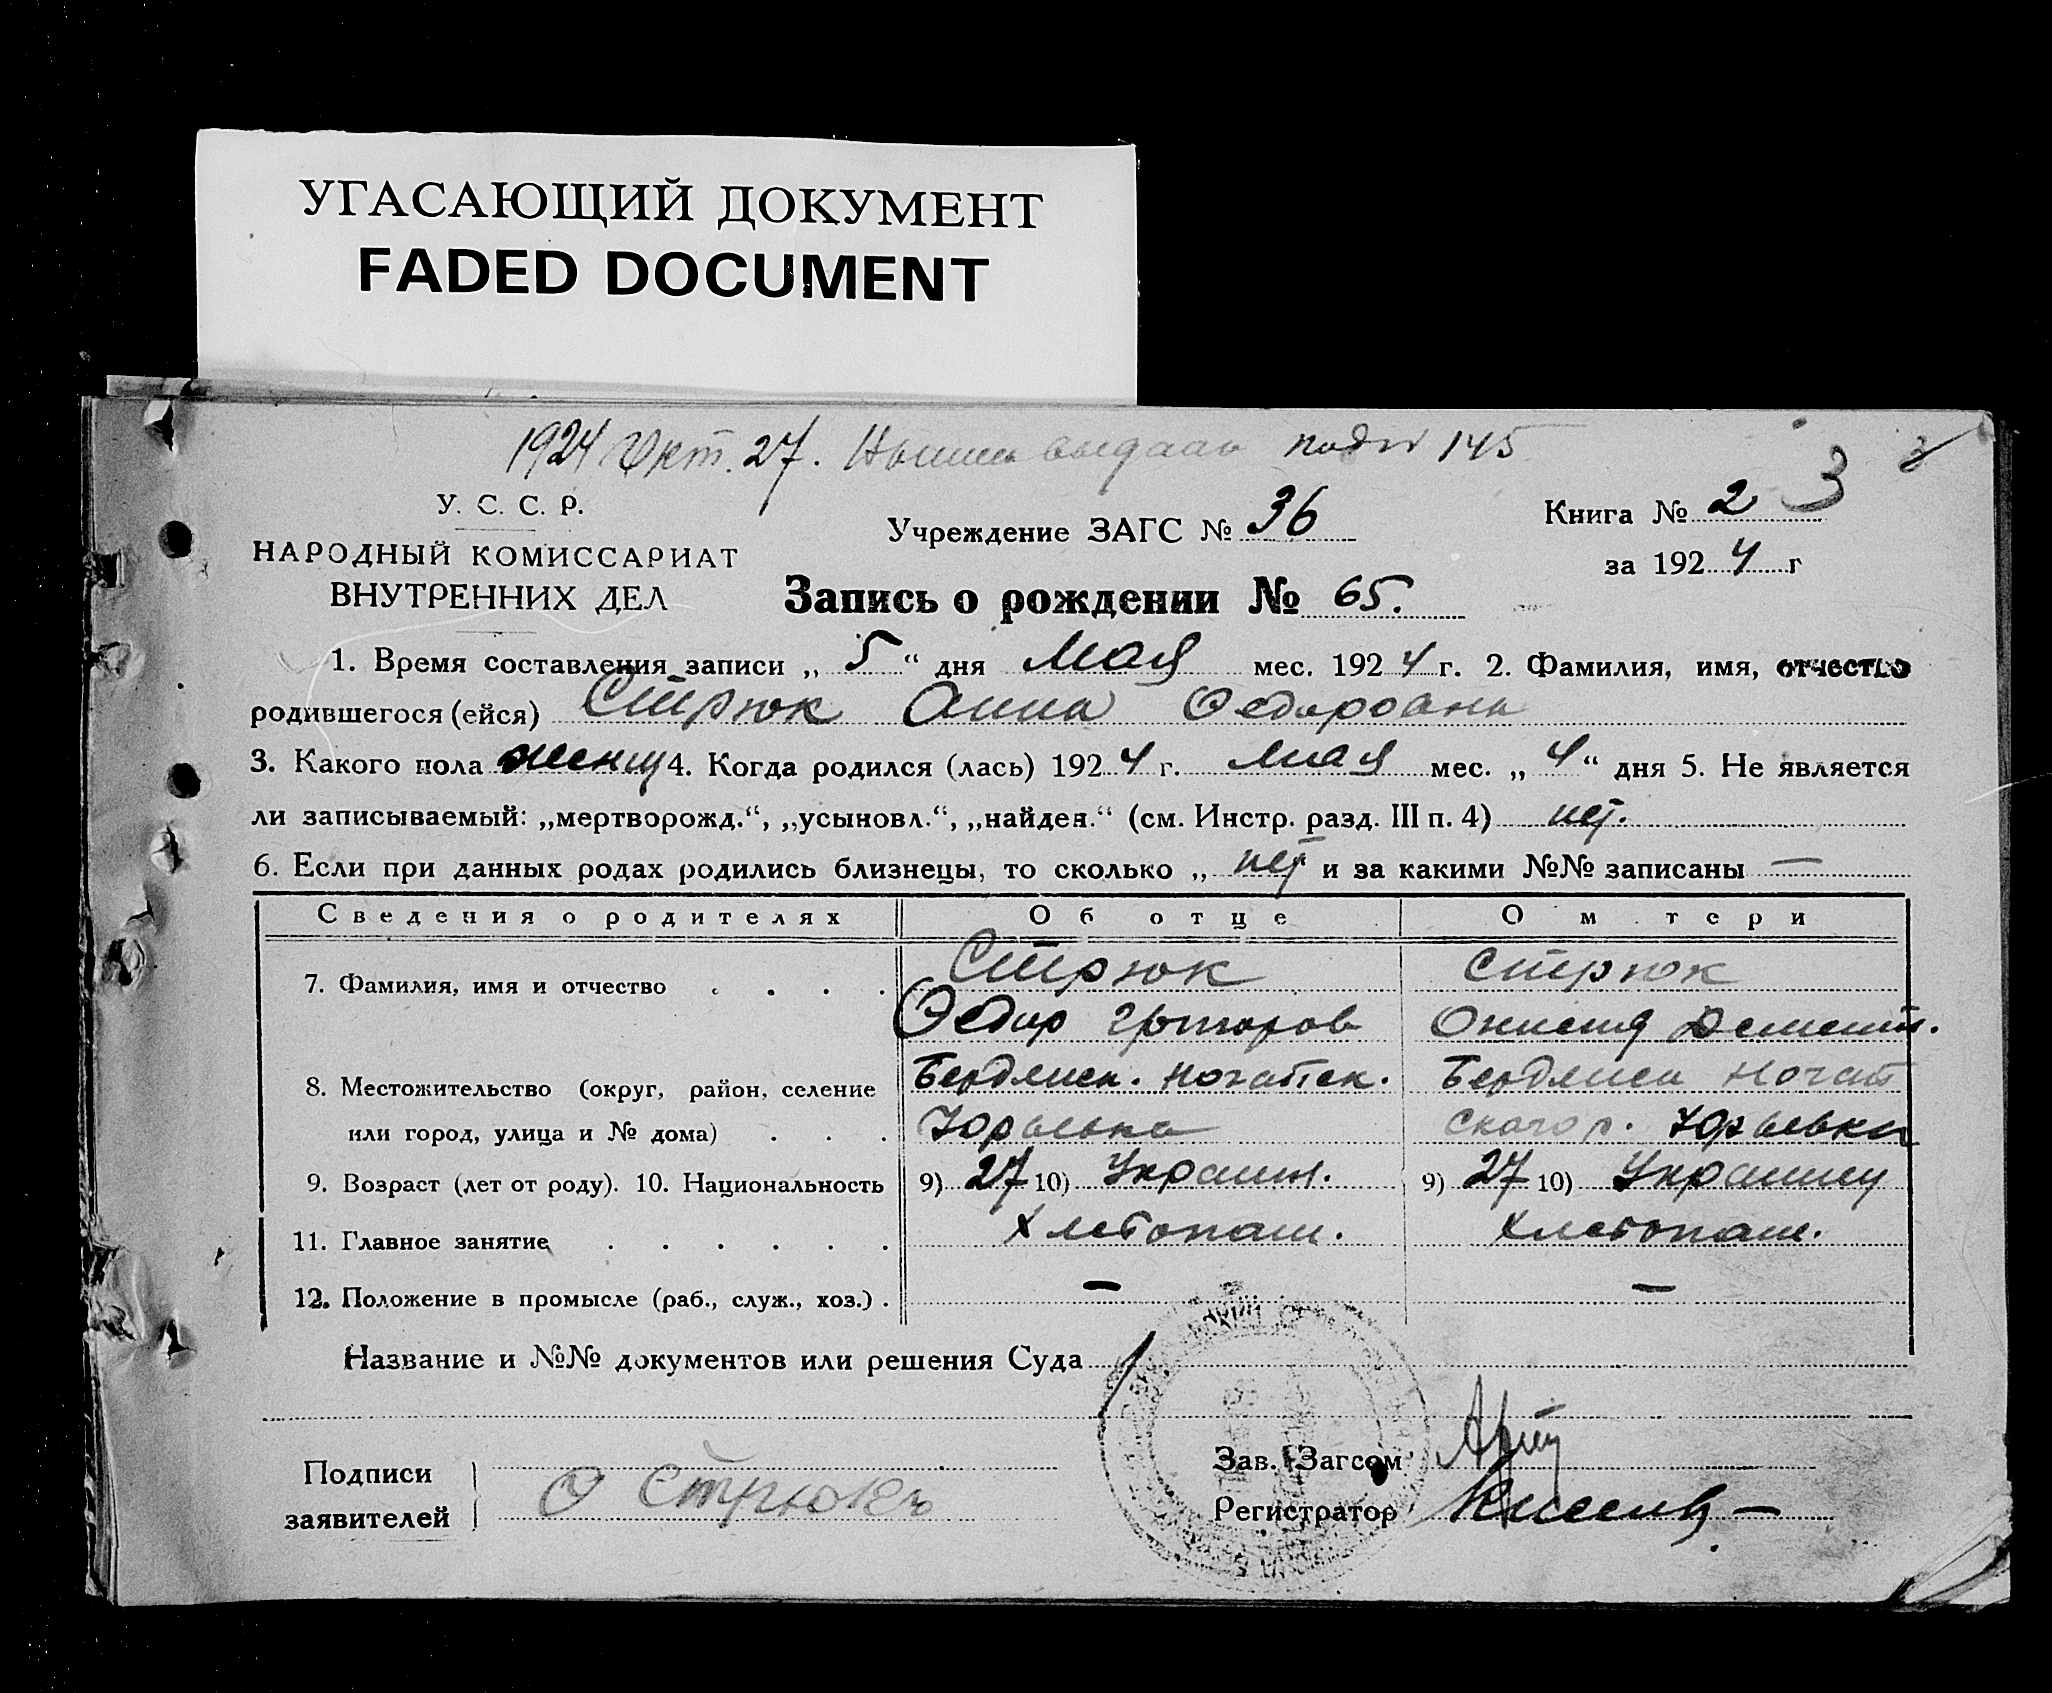 УГАСАЮЩИЙ ДОКУМЕНТ
FADED DOCUMENT
1924 Окт. 27. выдана под № 145
У. С. С. Р.
НАРОДНЫЙ КОМИССАРИАТ
ВНУТРЕННИХ ДЕЛ
Учреждение ЗАГС № 36
Книга № 2 3
за 1924 г
Запись о рождении № 65.
1. Время составления записи „ 5 “ дня Мая мес. 1924 г. 2. Фамилия, имя, отчество
родившегося (ейся) Стрюк Анна Федоровна
3. Какого пола женщ 4. Когда родился (лась) 1924 г. мая мес. „ 4 “ дня 5. Не является
ли записываемый: „мертворожд.“, „усыновл.“, „найден.“ (см. Инстр. разд. III п. 4) нет.
6. Если при данных родах родились близнецы, то сколько „ нет и за какими №№ записаны —
Сведения о родителях Об отце О м тери
7. Фамилия, имя и отчество . . . . Стрюк Стрюк
Федор Дементь.
8. Местожительство (округ, район, селение Бердянск. Ногайск. Бердянск Ногай
или город, улица и № дома) . . . Юрьевка ского р. Юрьевка
9. Возраст (лет от роду). 10. Национальность 9) 27 10) Украин. 9) 27 10) Украинц
11. Главное занятие . . . . . . Хлебопаш. Хлебопаш.
12. Положение в промысле (раб., служ., хоз.) . — —
Название и №№ документов или решения Суда
Подписи
заявителей
О Стрюкъ
Зав. Загсом
Регистратор